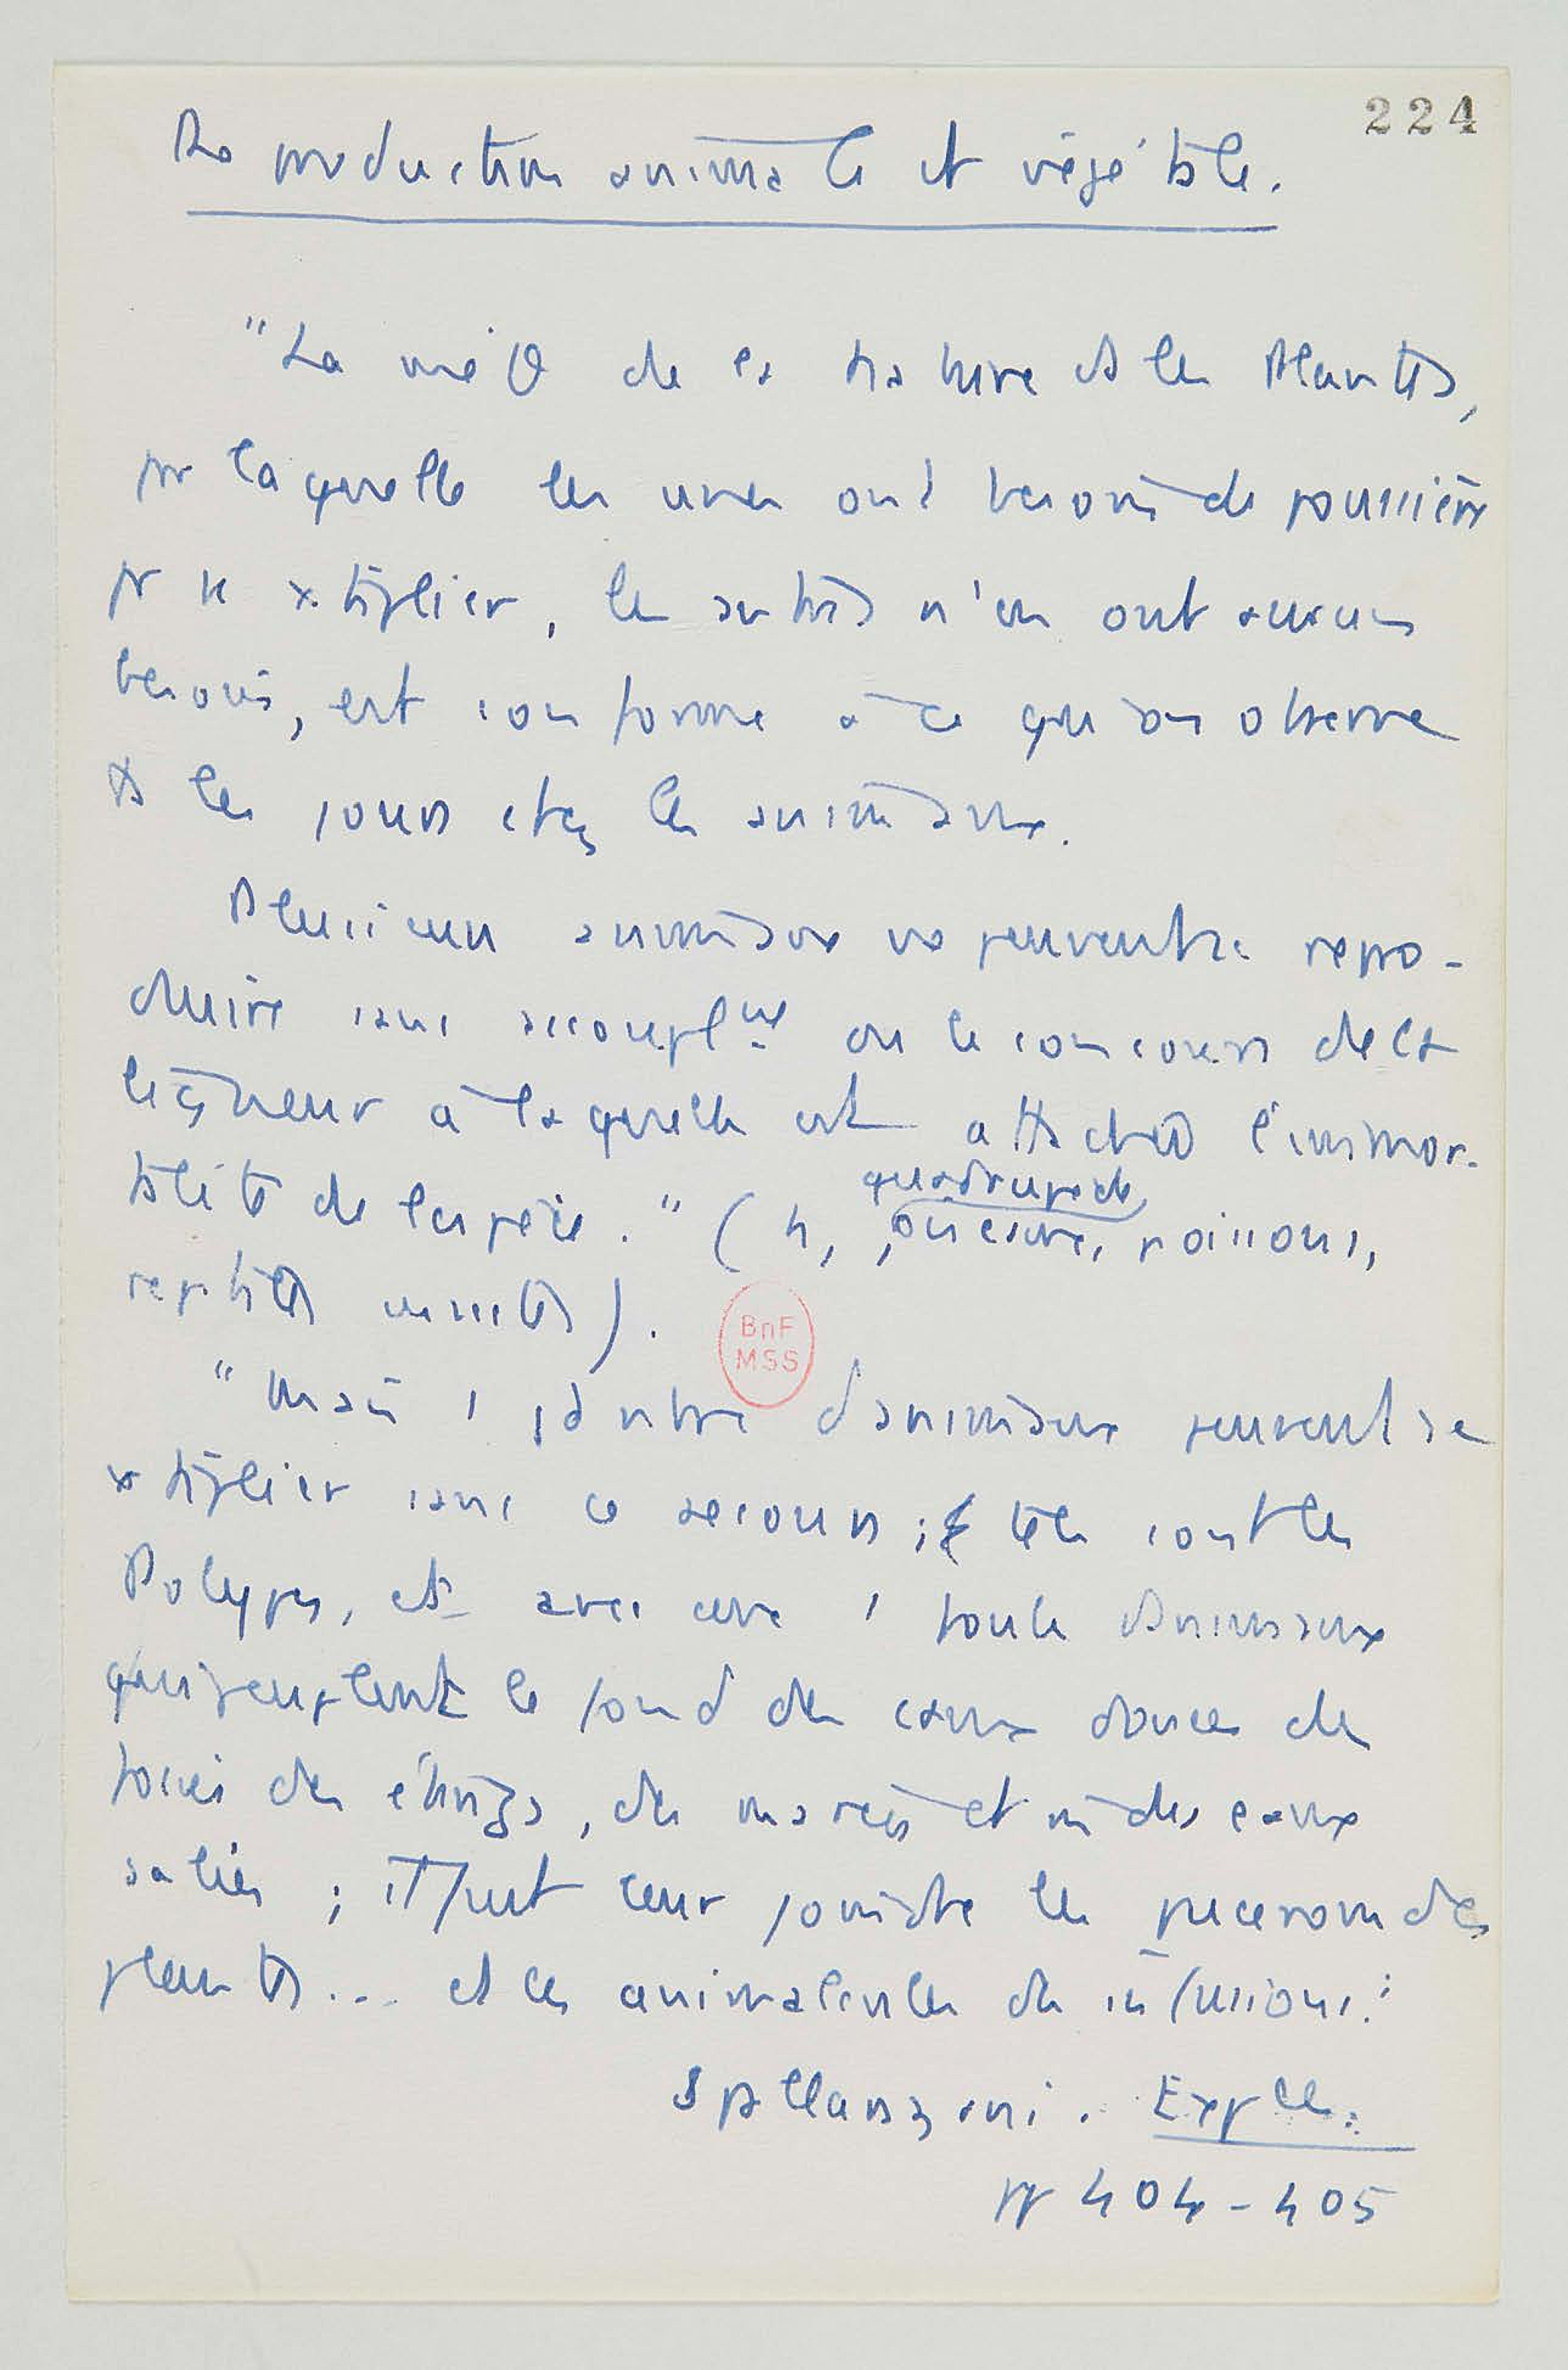 224
Reproduction animale et végétale.
"La méθ de la nature ds les Plantes,
pr laquelle les unes ont besoin de poussières
pr se xtiplier, les autres n'en ont aucun
besoin, est conforme à ce qu'on observe
ts les jours chez les animaux.
Plusieurs animaux ne peuvent se repro-
duire sans accouplmt ou le concours de la
liqueur à laquelle est attachée l'immor-
talité de l'espèce." (h, quadrupède, oiseaux, poissons,
reptiles insectes).
"Mais d'animaux peuvent se
xtiplier sans ce secours ; tels sont les
Polypes, et avec eux 1 foule d'animaux
qui peuplent le fond des eaux douces des
fossés des étangs, des marais et des eaux
salées ; il faut leur joindre les pucerons des
plantes... et les animalcules des infusions."
Spallanzani. Exp
pp 404-405
BnF
MSS